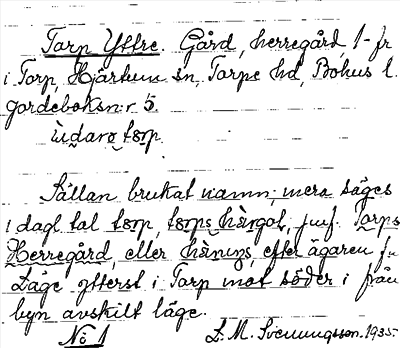 Torp Yttre. Gård, herregård, 1-fr
i Torp, Hjärtums sn, Torpe hd, Bohus l.
Jordeboksn:r 5.
Sällan brukat namn; mera säges
i dagl. tal tɷrp, jmf. Torps
Herregård, eller efter ägaren
Läge ytterst i Torp mot söder i från
byn avskilt läge.
No 1 L. M. Svenungsson. 1935.